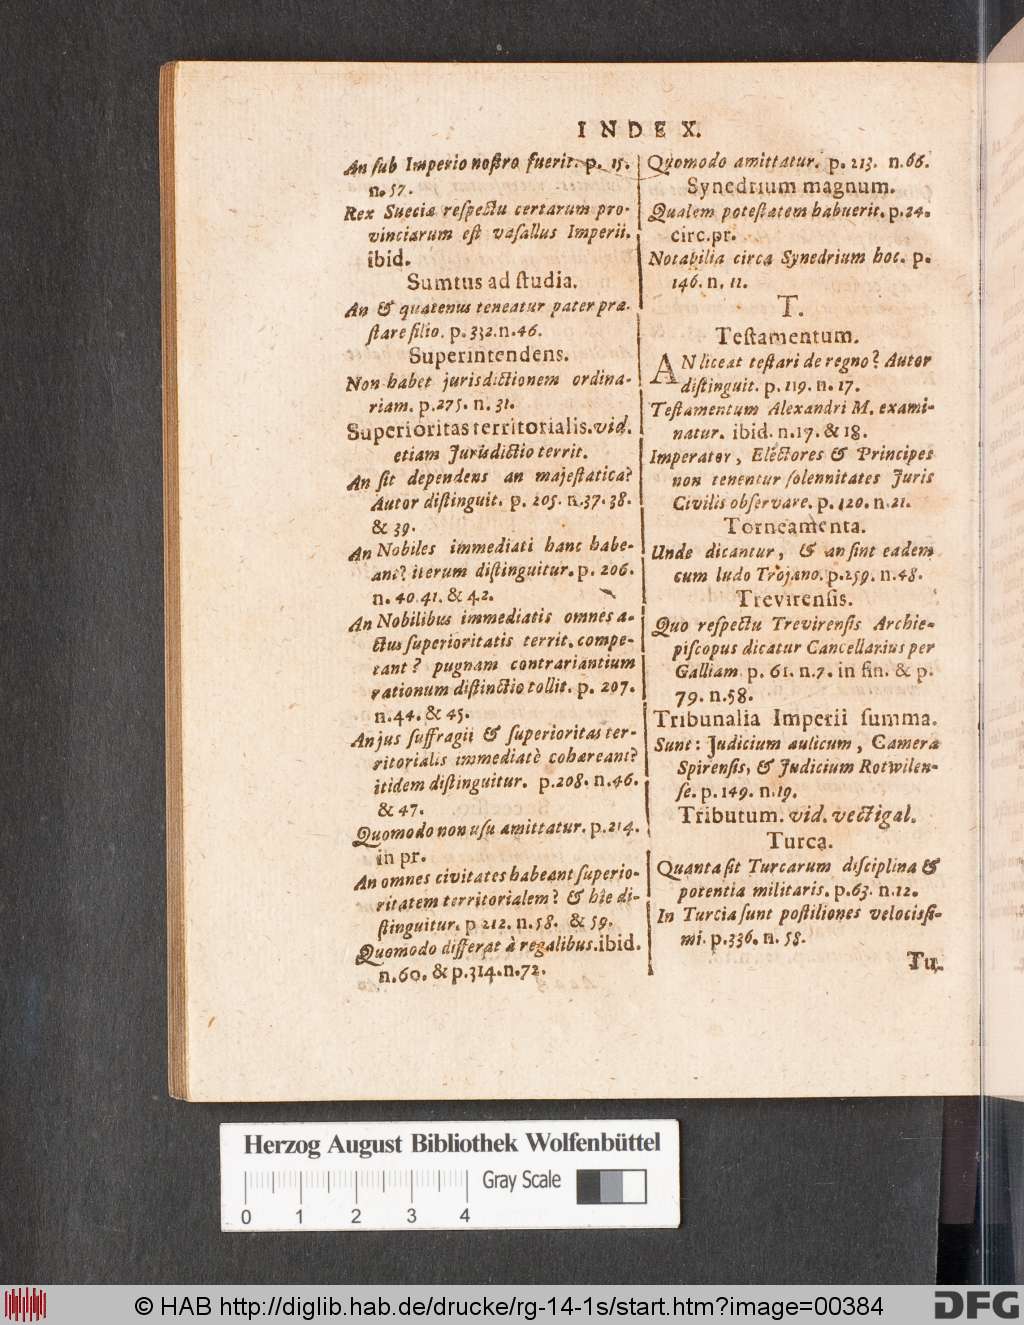 INDEX.
An ſub Imperio noſtro fuerit. p. 15.
n. 57.
Rex Sueciæ reſpectu certarum pro-
vinciarum eſt vaſallus Imperii.
ibid.
Sumtus ad ſtudia.
An & quatenus teneatur pater præ-
ſtare filio. p. 332. n. 46.
Superintendens.
Non habet jurisdictionem ordina-
riam. p. 275. n. 31.
Superioritas territorialis. vid.
etiam Jurisdictio territ.
An ſit dependens an majeſtatica?
Autor diſtinguit. p. 205. n. 37. 38.
& 39.
An Nobiles immediati hanc habe-
ant? iterum diſtinguitur. p. 206.
n. 40. 41. & 42.
An Nobilibus immediatis omnes a-
ctus ſuperioritatis territ. compe-
tant? pugnam contrariantium
rationum diſtinctio tollit. p. 207.
n. 44. & 45.
An jus ſuffragii & ſuperioritas ter-
ritorialis immediatè cohæreant?
itidem diſtinguitur. p. 208. n. 46.
& 47.
Quomodo non uſu amittatur. p. 214.
in pr.
An omnes civitates habeant ſuperio-
ritatem territorialem? & hîc di-
ſtinguitur. p 212. n. 58. & 59.
Quomodo differat à regalibus. ibid.
n. 60. & p. 314. n. 72.
Quomodo amittatur. p. 213. n. 66.
Synedrium magnum.
Qualem poteſtatem habuerit. p. 24.
circ. pr.
Notabilia circa Synedrium hoc. p.
146. n. 11.
T.
Teſtamentum.
AN liceat teſtari de regno? Autor
diſtinguit. p. 119. n. 17.
Teſtamentum Alexandri M. exami-
natur. ibid. n. 17. & 18.
Imperator, Electores & Principes
non tenentur ſolennitates Juris
Civilis obſervare. p. 120. n. 21.
Torneamenta.
Unde dicantur, & an ſint eadem
cum ludo Trojano. p. 259. n. 48.
Trevirenſis.
Quo reſpectu Trevirenſis Archie-
piſcopus dicatur Cancellarius per
Galliam p. 61. n. 7. in fin. & p.
79. n. 58.
Tribunalia Imperii ſumma.
Sunt: Judicium aulicum, Camera
Spirenſis, & Judicium Rotwilen-
ſe. p. 149. n. 19.
Tributum. vid. vectigal.
Turca.
Quanta ſit Turcarum diſciplina &
potentia militaris. p. 63. n. 12.
In Turcia ſunt poſtiliones velociſſi-
mi. p. 336. n. 58.
Tu-
Herzog August Bibliothek Wolfenbüttel
Gray Scale
0 1 2 3 4
© HAB http://diglib.hab.de/drucke/rg-14-1s/start.htm?image=00384
DFG